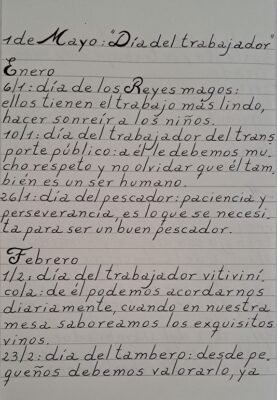 1 de Mayo: "Día del trabajador"
Enero
6/1: día de los Reyes magos:
ellos tienen el trabajo más lindo,
hacer sonreír a los niños.
10/1: día del trabajador del trans
porte público: a él le debemos mu_
cho respeto y no olvidar que él tam_
bién es un ser humano.
26/1: día del pescador: paciencia y
perseverancia, es lo que se necesi_
ta para ser un buen pescador.
Febrero
1/2: día del trabajador vitiviní_
cola: de él podemos acordarnos
diariamente, cuando en nuestra
mesa saboreamos los exquisitos
vinos.
23/2: día del tambero: desde pe_
queños debemos valorarlo, ya